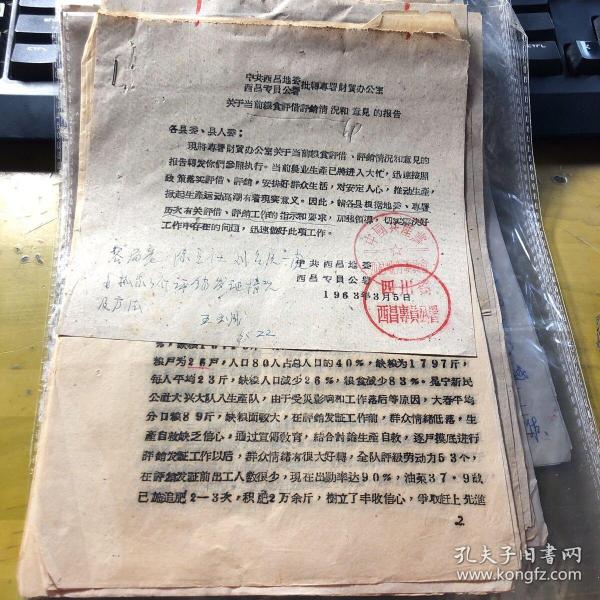 中共西昌地委
西昌专员公署
批转专署财贸办公室
关于当前粮食评借评銷情况和意見的报告
各县委、县人委：
現将专署财贸办公室关于当前粮食評借、評銷情况和意見的
报告轉发你們参照执行。当前農业生产已将进入大忙，迅速按照
政策落实評借、評銷，安排好群众生活，对安定人心，推动生产，
掀起生产运动高潮有着現实意义。因此，轄各县根据地委、專署
历次有关評借、評銷工作的指示和要求，加强領導，切实解决好
工作中存在的问題，迅速做好此項工作。
中共西昌地委
西昌专員公署
1963年3月5日
四川省
西昌專員公署
22
粮户为26戶，人口80人占总人口的40%，缺粮为1797斤，
每人平均23斤，缺粮人口减少26%，粮食减少83%。冕宁新民
公社大兴大队八生产队，由于受災影响和工作落后等原因，大春平均
分口粮89斤，缺粮面較大，在評銷发証工作前，群众情緒低落，生
產自救缺乏信心，通过宣傳教育，結合討論生產自救，逐戶摸底进行
評銷发証工作以后，群众情緒有很大好轉，全队評級劳动力53个，
在評銷发証前出工人数很少，現在出勤率达90%，油菜37.9亩
已施追肥2—3次，积肥2万余斤，樹立了丰收信心，争取赶上先進
2.
孔夫子旧書网
www.kongfz.com